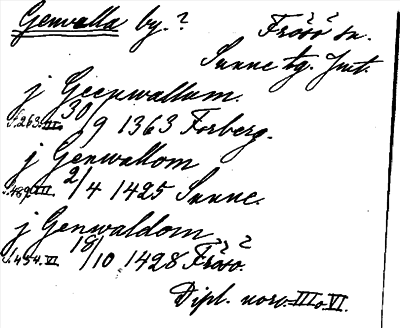 Genvalla by.? Frösö sn.
Sunne tg. Jmt.
j Geenwallum.
s. 263. III. 30/9 1363 Forberg.
j Genwallom
s. 489. III. 2/4 1425 Sunne.
j Genwaldom
s. 454. VI. 18/10 1428 Frösö.
Dipl. norv. III o. VI.